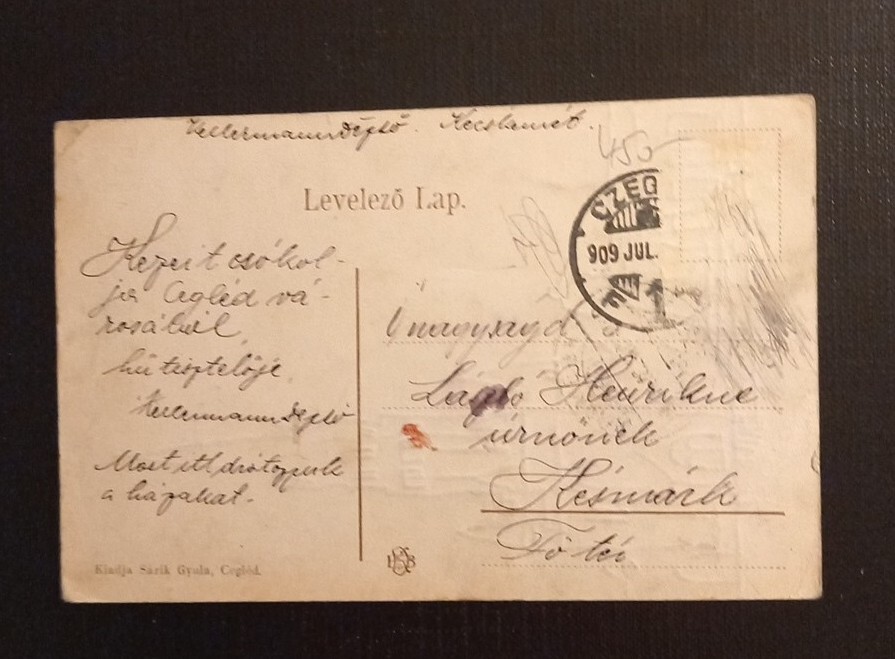 Kellermann Dezső. Kecskemét.
450
Levelező Lap.
CZEG
909 JUL.
Kezeit csókol-
ja Cegléd vá-
rosából
hű tisztelője
Kellermann Dezső
Most itt drótozzuk
a házakat.
Őnagysága
László Henrikné
úrnőnek
Késmárk
Fő tér
Kiadja Sárik Gyula, Cegléd.